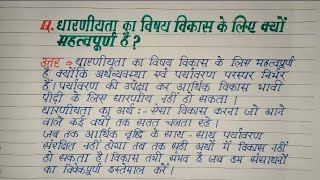 Q. धारणीयता का विषय विकास के लिए क्यों
महत्वपूर्ण है ?
उत्तर :- धारणीयता का विषय विकास के लिए महत्वपूर्ण
है क्योंकि अर्थव्यवस्था एवं पर्यावरण परस्पर निर्भर
हैं। पर्यावरण की उपेक्षा कर आर्थिक विकास भावी
पीढ़ी के लिए धारणीय नहीं हो सकता ।
धारणीयता का अर्थ :- ऐसा विकास करना जो आने
वाले कई वर्षों तक सतत चलता रहे ।
जब तक आर्थिक वृद्धि के साथ - साथ पर्यावरण
संरक्षित नहीं होगा तब तक सही अर्थों में विकास नहीं
हो सकता है। विकास तभी संभव है जब हम संसाधनों
का विवेकपूर्ण इस्तेमाल करें ।